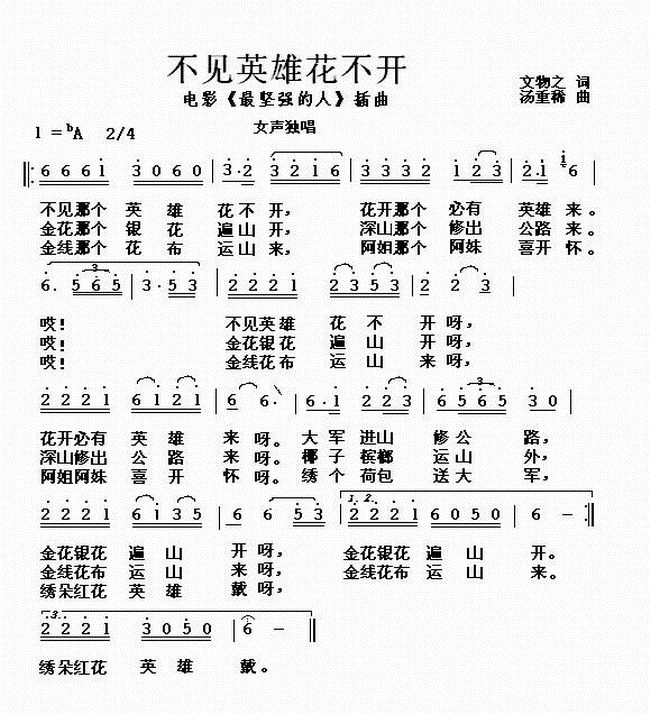 不见英雄花不开
电影《最坚强的人》插曲
文物之 词
汤重稀 曲
1=ᵇA 2/4
女声独唱
6 6 6 1 3 0 6 0 3·2 3 2 1 6 3 3 3 2 1 2 3 2·1 1 6
不见那个 英 雄 花不开, 花开那个 必有 英雄 来。
金花那个 银 花 遍山开, 深山那个 修出 公路 来。
金线那个 花 布 运山来, 阿姐那个 阿妹 喜开 怀。
6. 5 6 5 3·5 3 2 2 2 1 2 3 5 3 2 2 3
3
哎! 不见英雄 花 不 开 呀,
哎! 金花银花 遍 山 开 呀,
哎! 金线花布 运 山 来 呀,
2 2 2 1 6 1 2 1 6 6· 6·1 2 2 3 6 5 6 5 3 0
3
花开必有 英 雄 来 呀。大 军 进山 修 公 路,
深山修出 公 路 来 呀。椰 子 槟榔 运 山 外,
阿姐阿妹 喜 开 怀 呀。绣 个 荷包 送 大 军,
1. 2.
2 2 2 1 6 1 3 5 6 6 5 3 2 2 2 1 6 0 5 0 6 –
金花银花 遍 山 开 呀, 金花银花 遍 山 开。
金线花布 运 山 来 呀, 金线花布 运 山 来。
绣朵红花 英 雄 戴 呀,
3.
2 2 2 1 3 0 5 0 6 –
绣朵红花 英 雄 戴。